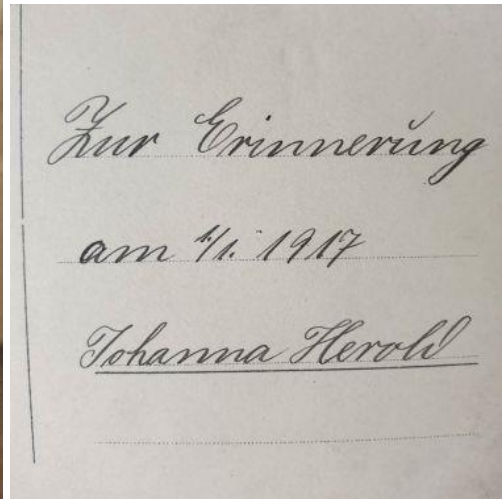 Zur Erinnerung
am 1./1. 1917
Johanna Herold